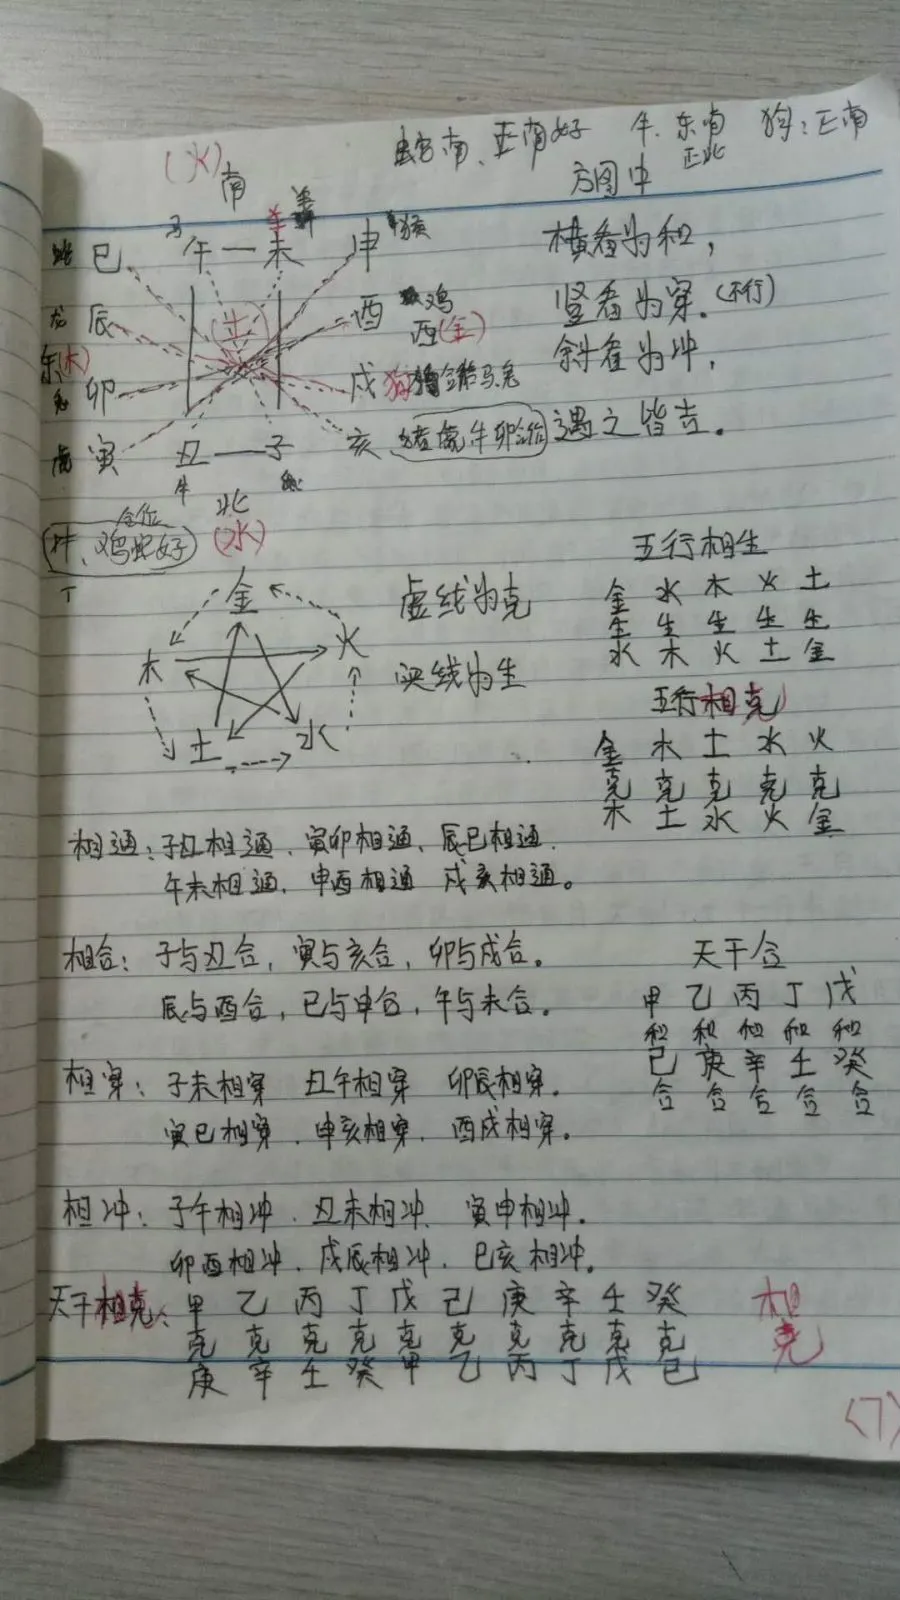 蛇南、正南好 牛.东南 狗:正南
正北
(火)
南
方图中
马 羊
蛇 巳 午一未 申 猴
横看为和,
龙 辰 (土) 酉 鸡
西(金)
竖看为穿.(不行)
东(木)
兔 卯 戌 狗
斜看为冲,
虎 寅 丑一子 亥
遇之皆吉。
牛
北
(水)
合位
鸡蛇好
五行相生
金 虚线为克
金 水 木 火 土
生 生 生 生 生
水 木 火 土 金
木 火
实线为生
土 水
五行相克
金 木 土 水 火
克 克 克 克 克
木 土 水 火 金
相通:子丑相通、寅卯相通、辰巳相通.
午未相通、申酉相通 戌亥相通。
相合:子与丑合,寅与亥合,卯与戌合。
辰与酉合,巳与申合,午与未合。
天干合
甲 乙 丙 丁 戊
和 和 和 和 和
己 庚 辛 壬 癸
合 合 合 合 合
相穿:子未相穿 丑午相穿 卯辰相穿.
寅巳相穿.申亥相穿.酉戌相穿。
相冲:子午相冲.丑未相冲、寅申相冲.
卯酉相冲.戌辰相冲.巳亥相冲。
天干相克:甲 乙 丙 丁 戊 己 庚 辛 壬 癸
克 克 克 克 克 克 克 克 克 克
庚 辛 壬 癸 甲 乙 丙 丁 戊 己
相
克
(7)